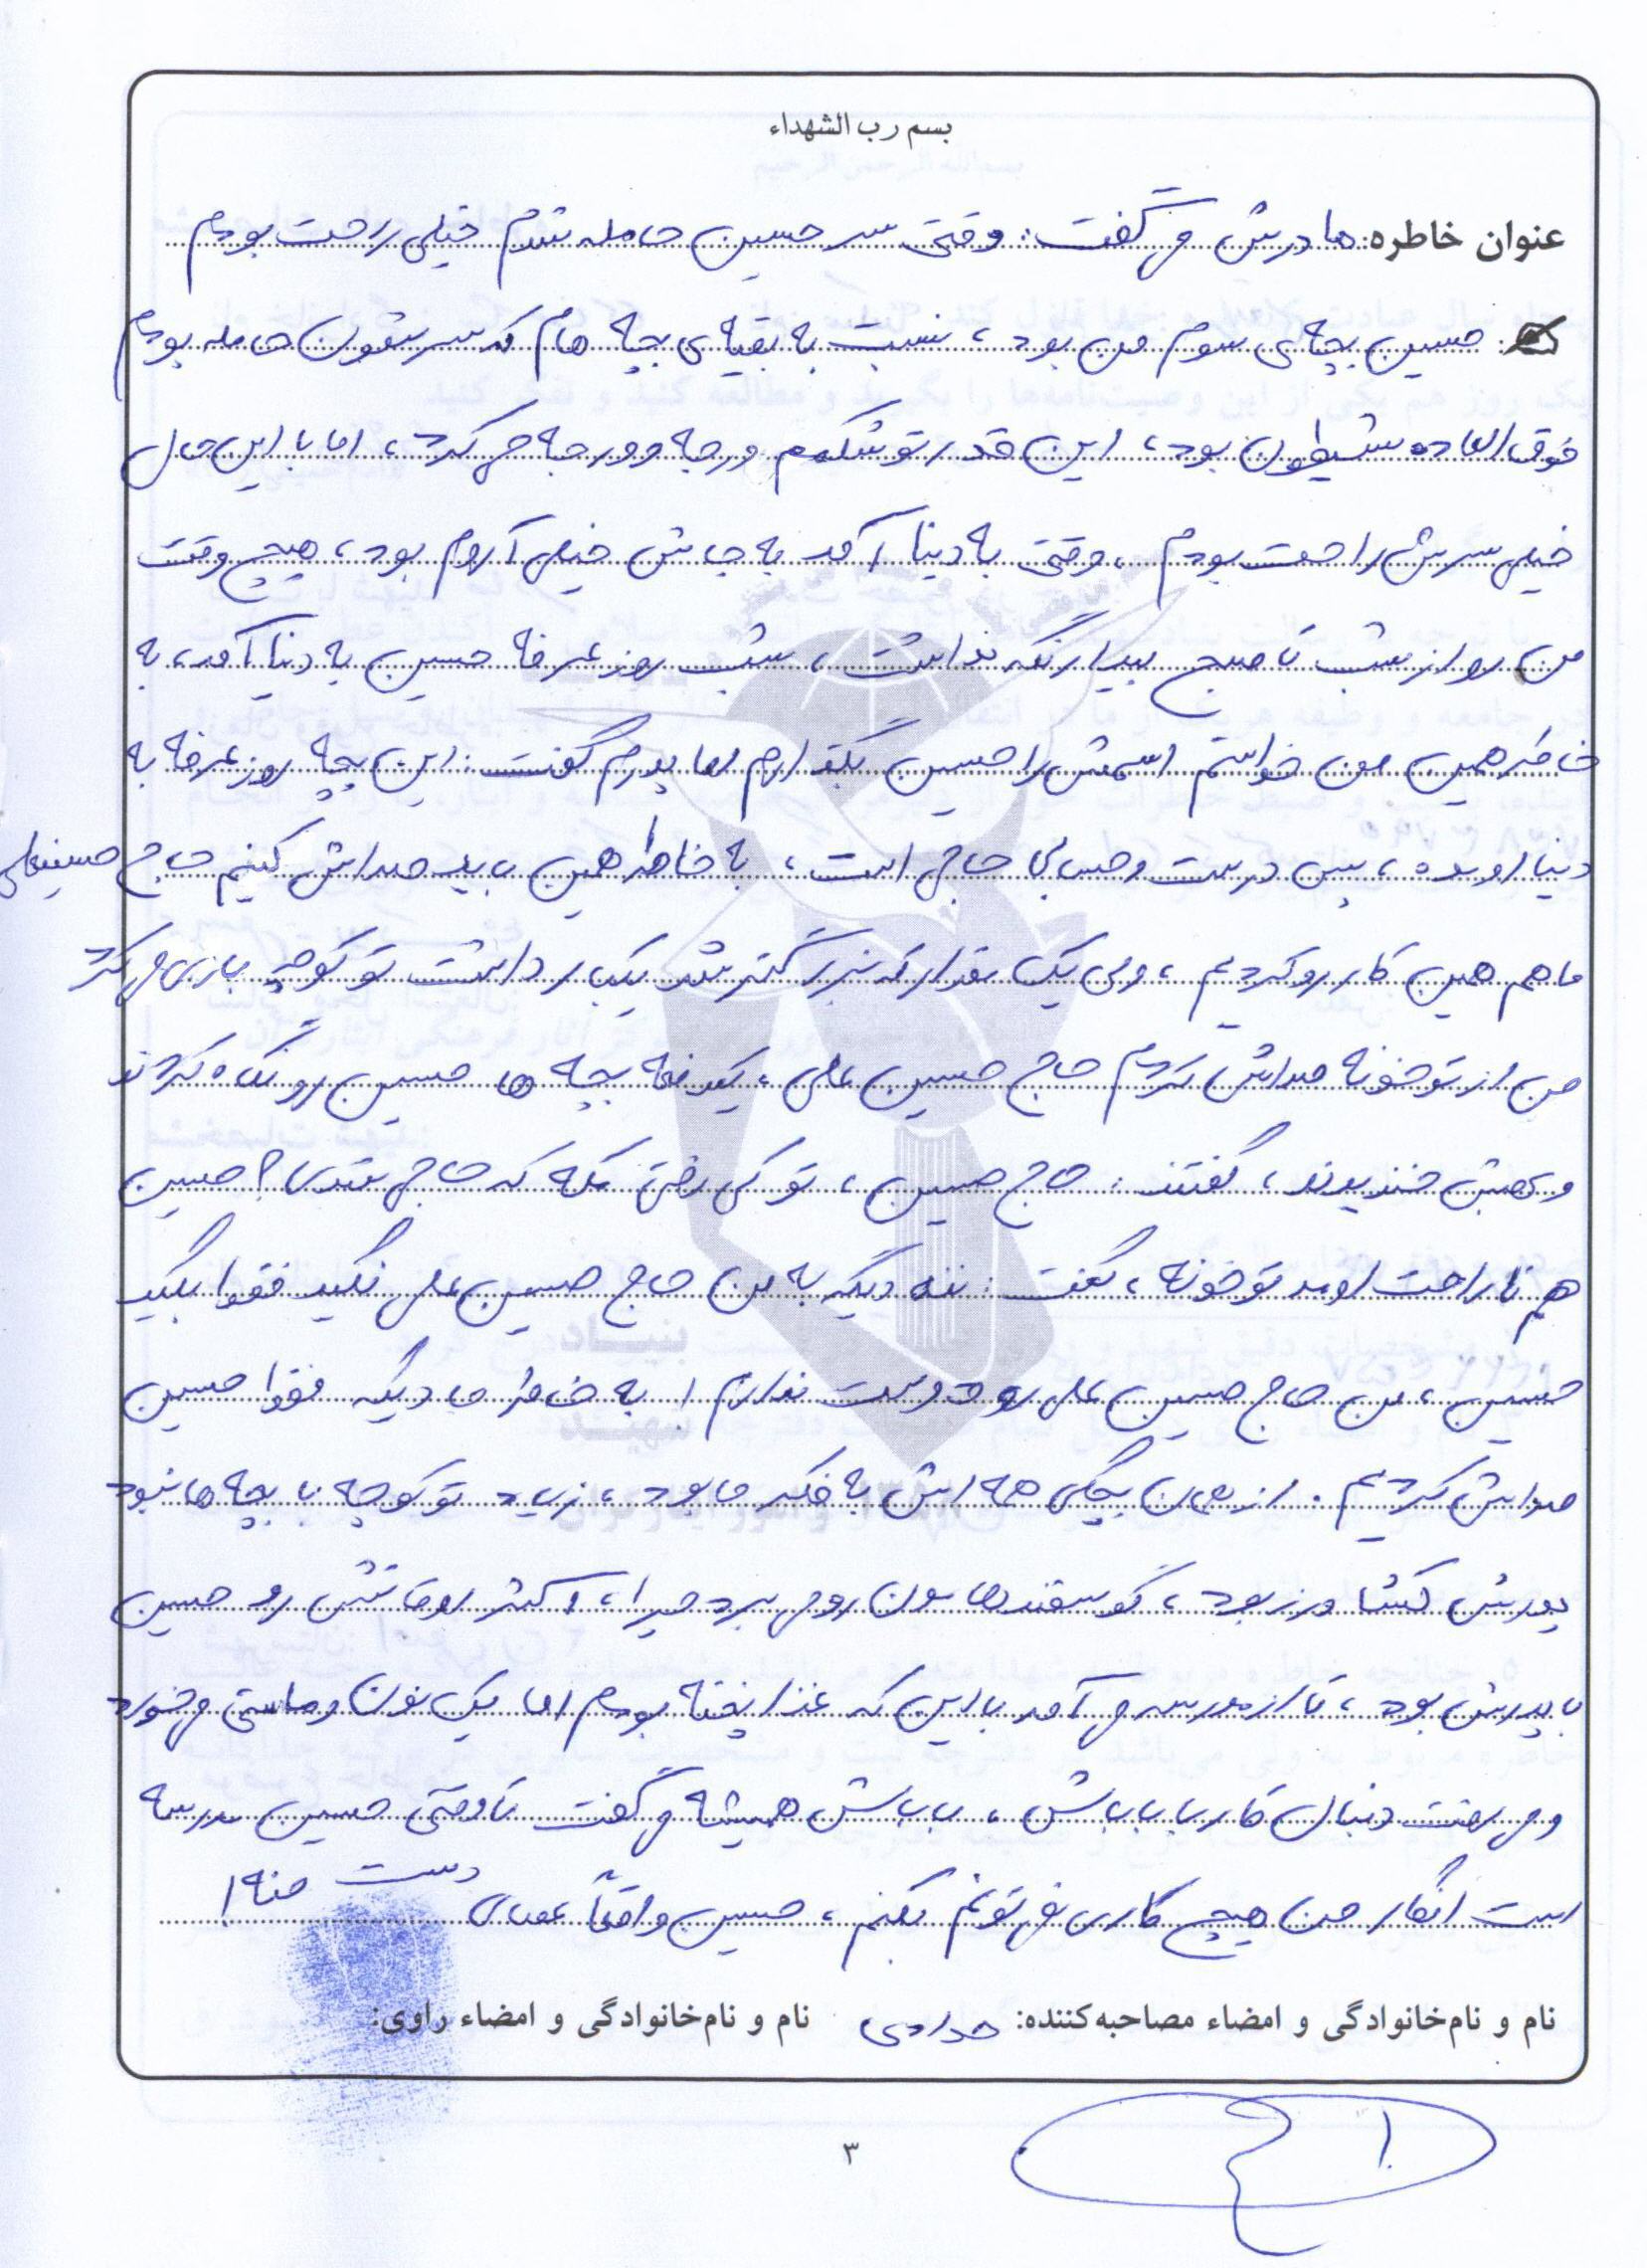 بسم رب الشهداء
عنوان خاطره: مادرش می گفت: وقتی سر حسین حامله شدم خیلی راحت بودم
حسین بچه ی سوم من بود، نسبت به بقیه ی بچه هام که سرشون حامله بودم
فوق العاده شیطون بود، این قدر تو شکمم ورجه وورجه می کرد، اما با این حال
خیلی سرش راحت بودم، وقتی به دنیا آمد به جاش خیلی آروم بود، هیچ وقت
من رو از شب تا صبح بیدار نگه نداشت، شب روز عرفه حسین به دنیا آمد، به
خاطر همین من خواستم اسمش را حسین بگذارم اما پدرم گفت: این بچه روز عرفه به
دنیا اومده، پس درست و حسابی حاجی است، به خاطر همین باید صداش کنیم حاج حسینعلی
ما هم همین کار رو کردیم، ولی یک مقدار که بزرگتر شد یکبار داشت تو کوچه بازی می کرد
من از تو خونه صداش کردم حاج حسین علی، یکدفعه بچه ها حسین رو نگاه کردند
و بهش خندیدند، گفتند: حاج حسین، تو کی رفتی مکه که حاجی شدی؟ حسین
هم ناراحت اومد تو خونه، گفت: ننه دیگه به من حاج حسین علی نگید فقط بگید
حسین، من حاج حسین علی رو دوست ندارم! به خاطر ما دیگه فقط حسین
صداش کردیم. از همان بچگی همه اش به فکر ما بود، زیاد تو کوچه با بچه ها نبود
پدرش کشاورز بود، گوسفندهامون رو می برد چرا، اکثر اوقاتش رو حسین
با پدرش بود، تا از مدرسه می آمد با این که غذا پخته بودم اما یک نون و ماستی می خورد
و می رفت دنبال کار با باباش، باباش همیشه می گفت تا وقتی حسین مدرسه
است انگار من هیچ کاری نمی تونم بکنم، حسین واقعاً عصای دست منه!
نام و نام‌خانوادگی و امضاء مصاحبه‌کننده: نام و نام‌خانوادگی و امضاء راوی:
۳